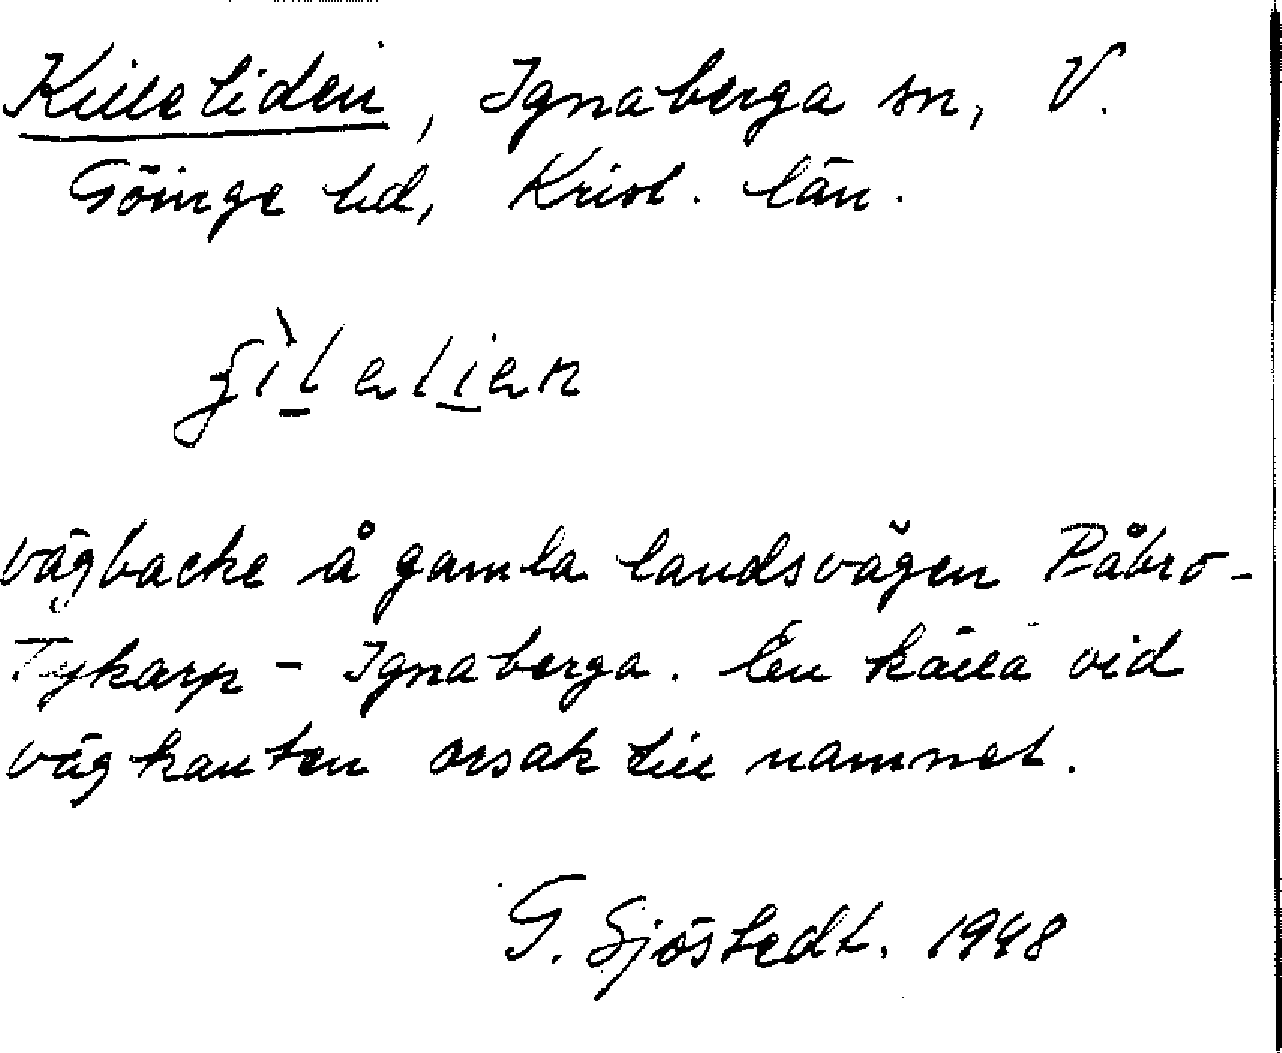 Killeliden, Ignaberga sn, V.
Göinge hd, Krist. län.
vägbacke å gamla landsvägen Påbro-
Tykarp - Ignaberga. En källa vid
vägkanten orsak till namnet.
G. Sjöstedt. 1948